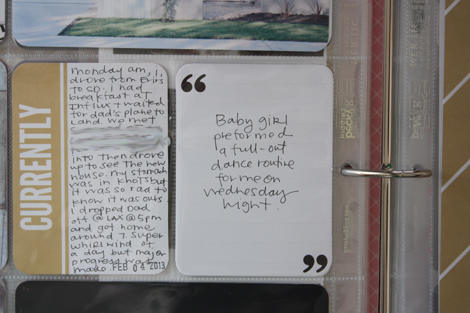 CURRENTLY
monday am, i
drove from Eric's
to SD. I had
breakfast at
waited
for dad's plane to
land. We met
into then drove
up to see the new
house. my stomach
was in knots but
it was so rad to
know it was ours
I dropped Dad
off @ LAX @ 5pm
and got home
around 7. super
whirlwind of
a day but major
progress was
made. FEB 04 2013
“
Baby girl
preformed
a full-out
dance routine
for me on
wednesday
night.
”